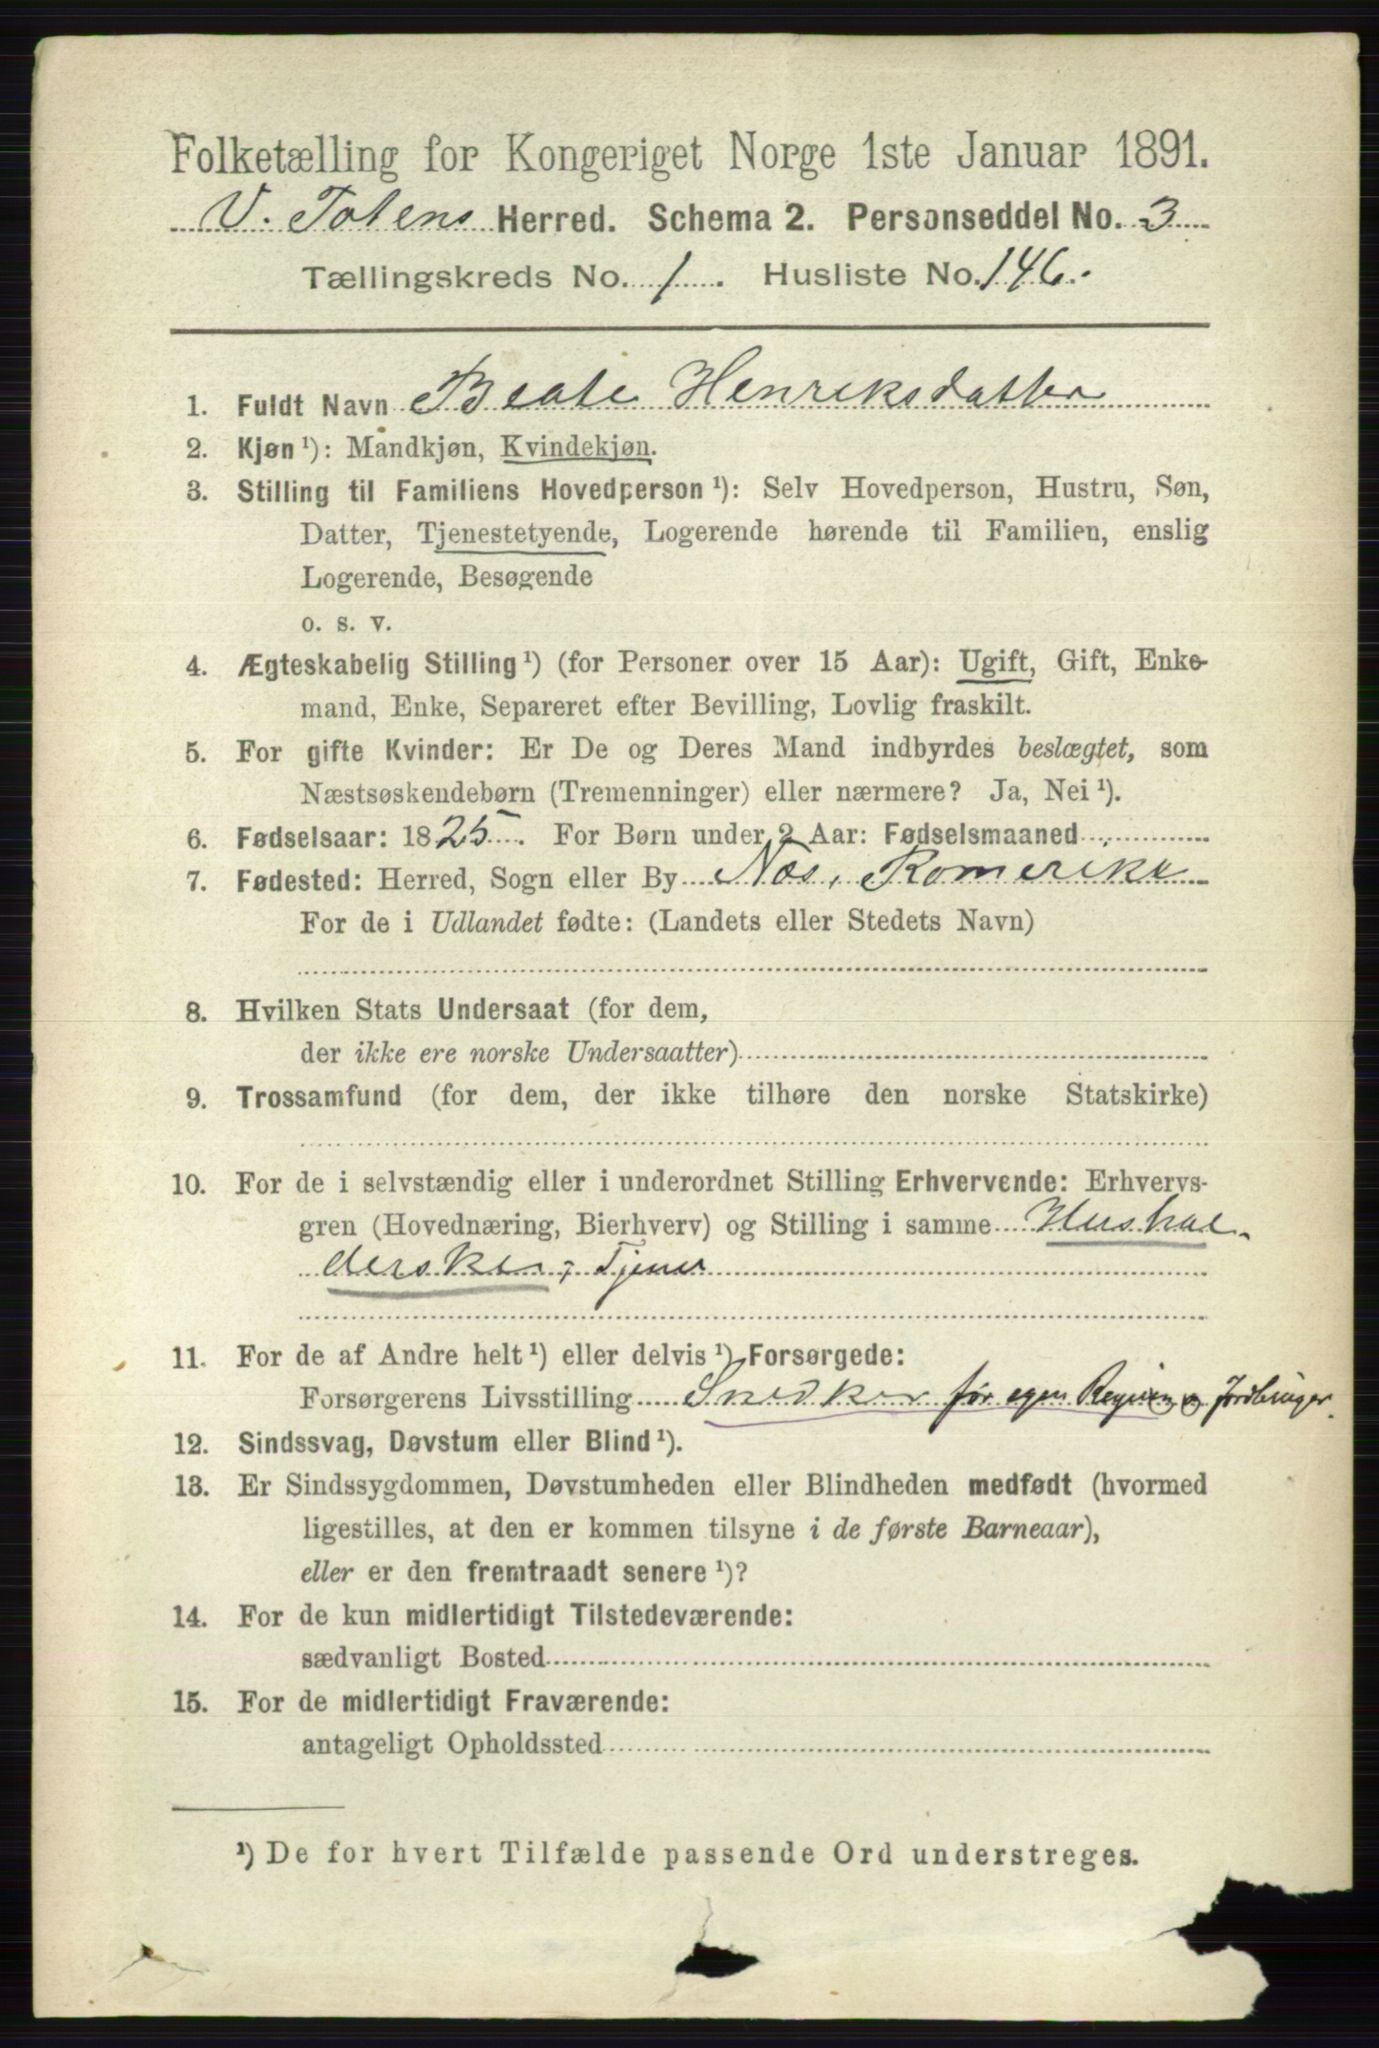 Folketælling for Kongeriget Norge 1ste Januar 1891.
V. Totens Herred. Schema 2. Personseddel No. 3
Tællingskreds No. 1. Husliste No. 146.
1. Fuldt Navn Beate Henriksdatter
2. Kjøn¹): Mandkjøn, Kvindekjøn.
3. Stilling til Familiens Hovedperson¹): Selv Hovedperson, Hustru, Søn,
Datter, Tjenestetyende, Logerende hørende til Familien, enslig
Logerende, Besøgende
o. s. v.
4. Ægteskabelig Stilling¹) (for Personer over 15 Aar): Ugift, Gift, Enke-
mand, Enke, Separeret efter Bevilling, Lovlig fraskilt.
5. For gifte Kvinder: Er De og Deres Mand indbyrdes beslægtet, som
Næstsøskendebørn (Tremenninger) eller nærmere? Ja, Nei¹).
6. Fødselsaar: 1825. For Børn under 2 Aar: Fødselsmaaned
7. Fødested: Herred, Sogn eller By Næs, Romerike
For de i Udlandet fødte: (Landets eller Stedets Navn)
8. Hvilken Stats Undersaat (for dem,
der ikke ere norske Undersaatter)
9. Trossamfund (for dem, der ikke tilhøre den norske Statskirke)
10. For de i selvstændig eller i underordnet Stilling Erhvervende: Erhvervs-
gren (Hovednæring, Bierhverv) og Stilling i samme Hushol-
derske, Tjener
11. For de af Andre helt¹) eller delvis¹) Forsørgede:
Forsørgerens Livsstilling Snedker før egen Regning og Jordbruger.
12. Sindssvag, Døvstum eller Blind¹).
13. Er Sindssygdommen, Døvstumheden eller Blindheden medfødt (hvormed
ligestilles, at den er kommen tilsyne i de første Barneaar),
eller er den fremtraadt senere¹)?
14. For de kun midlertidigt Tilstedeværende:
sædvanligt Bosted
15. For de midlertidigt Fraværende:
antageligt Opholdssted
¹) De for hvert Tilfælde passende Ord understreges.